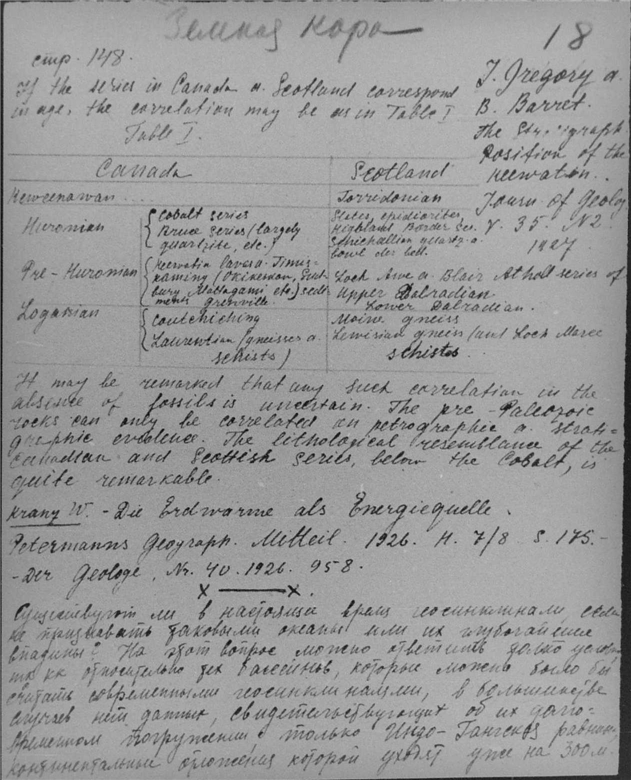 Земная кора
18
стр. 148.
If the series in Canada a. Scotland correspond
in age, the correlation may be as in Table I
Table I.
J. Gregory a.
B. Barret.
The Stratigraph.
Position of the
Keewatin.
Journ of Geology
V. 35. N2.
1927
Canada Scotland
Keweenawan .... Torridonian
Huronian { Cobalt series
Bruce Series (largely
quartzite, etc.)
Slates, epidiorites,
Highland Border Ser.
Schichallion quartz a.
Pre-Huronian { Keewatin lavas a. Timis-
kaming (Okikeman, Sud-
bury, Mattagami etc.) sedi-
ments Grenville.
Loch Awe a. Blair Atholl series of
Upper Dalradian
Lower Dalradian.
Loganian { Coutchiching
Laurentian (gneisses a.
schists)
Moine gneiss
Lewisian gneiss (and Loch Maree
schists
It may be remarked that any such correlation in the
absence of fossils is uncertain. The pre-Paleozoic
rocks can only be correlated on petrographic a. strati-
graphic evidence. The lithological resemblance of the
Canadian and Scottish Series, below the Cobalt, is
quite remarkable.
Kranz W. - Die Erdwärme als Energiequelle.
Petermanns Geograph. Mitteil. 1926. H. 7/8 S. 175.-
- Der Geologe, Nr. 40. 1926. 958.
x — x.
Существуют ли в настоящее время геосинклинали, если
не признавать таковыми океаны или их глубочайшие
впадины? На этот вопрос можно ответить только условно
тк кк относительно тех бассейнов, которые можно было бы
считать современными геосинклиналями, в большинстве
случаев нет данных, свидетельствующих об их долго-
временном погружении, только Индо-Гангская равнина,
континентальные отложения которой уходят уже на 300м.